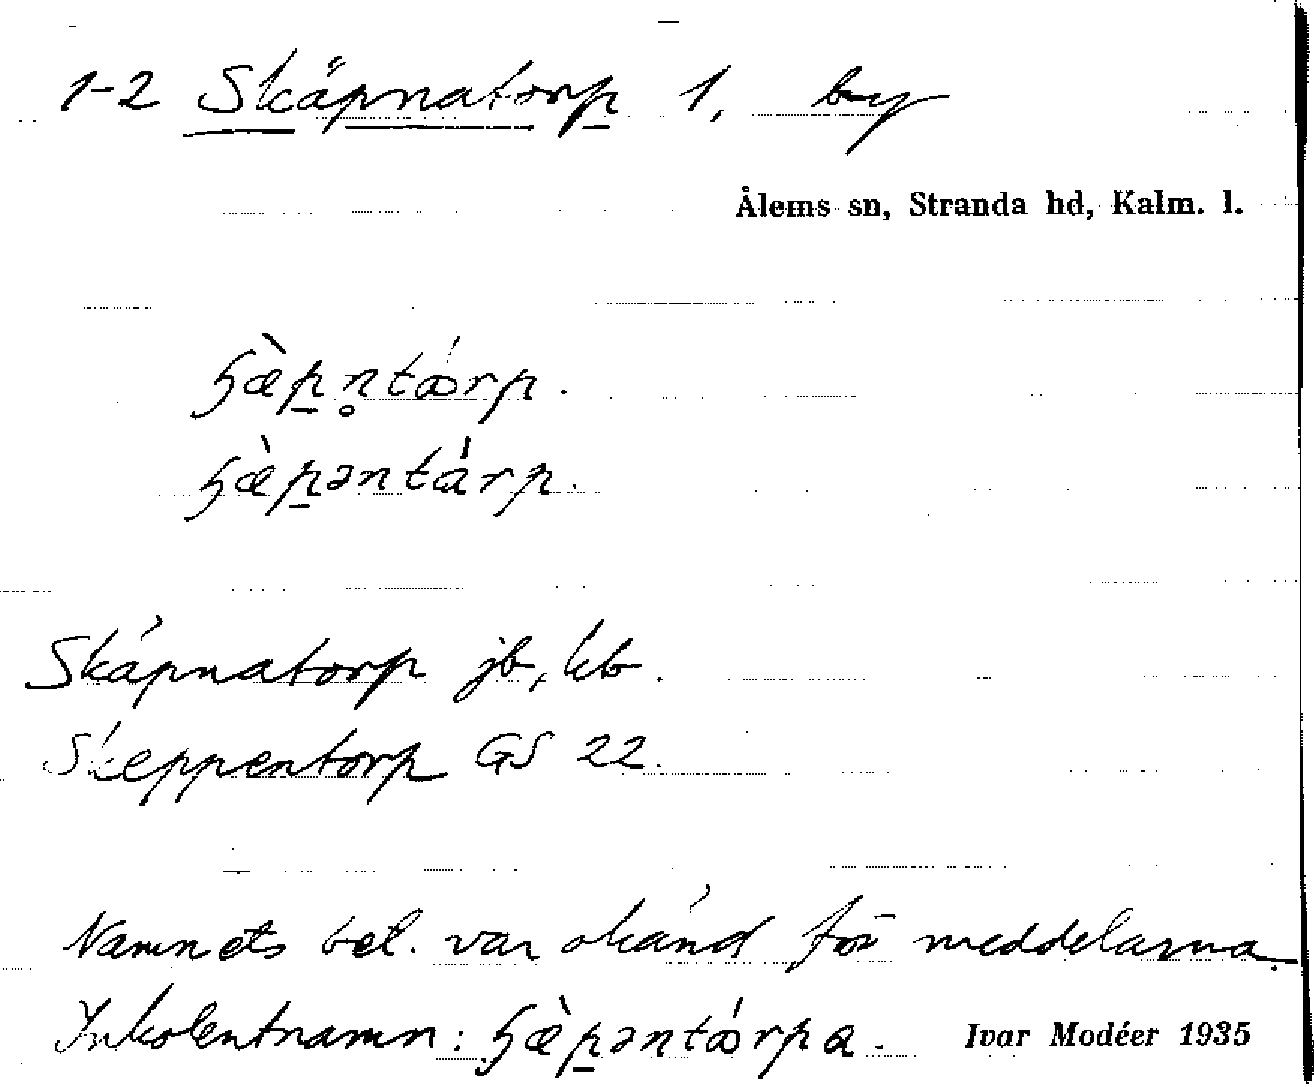 1-2 Skäpnatorp 1, by
Ålems sn, Stranda hd, Kalm. l.
ʂæ̀pn̥tórp.
ʂæ̀pəntårp.
Skäpnatorp jb, kb.
Skeppentorp GS 22.
Namnets bet. var okänd för meddelarna.
Inkolentnamn: ʂæ̀pəntórpa.
Ivar Modéer 1935